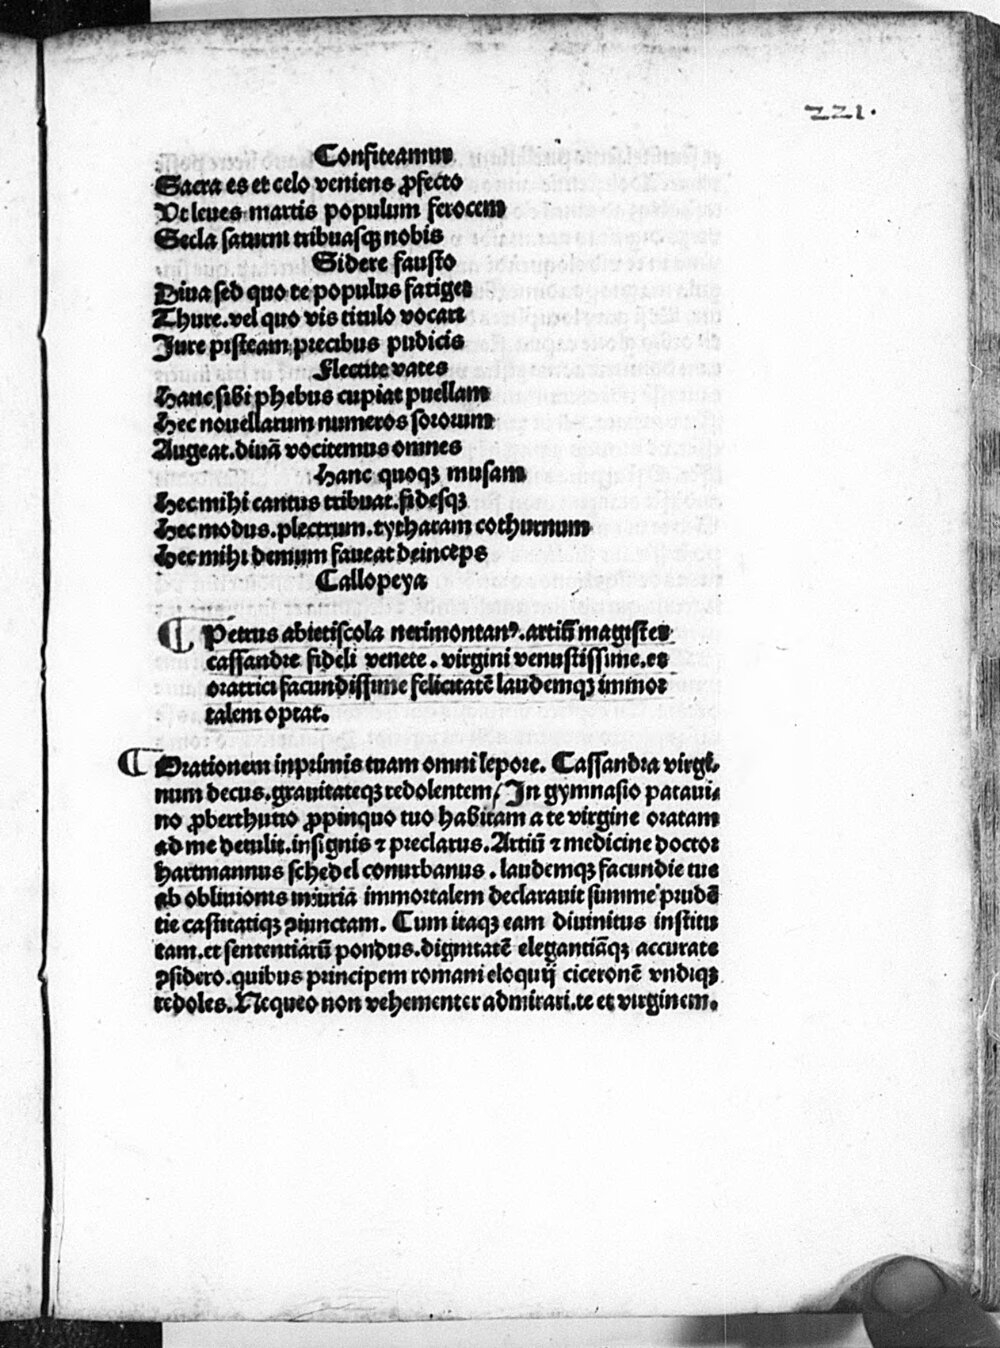 221.
Confiteamur
Sacra es et celo veniens ꝓfecto
Ut leues martis populum ferocem
Secla saturni tribuasqꝫ nobis
Sidere fausto
Diua sed quo te populus fatiget
Thure. vel quo vis titulo vocari
Jure pisteam precibus pudicis
Flectite vates
Hanc sibi phebus cupiat puellam
Hec nouellarum numeros sororum
Augeat. diuā vocitemus omnes
Hanc quoqꝫ musam
Hec mihi cantus tribuat. fidesqꝫ
Hec modus. plectrum. cytharam cothurnum
Hec mihi demum faueat deinceps
Callopeya
¶ Petrus abietiscola nerimontanꝰ. artiū magister
cassandre fideli venete. virgini venustissime. et
oratrici facundissime felicitatē laudemqꝫ immor
talem optat.
¶ Orationem inprimis tuam omni lepore. Cassandra virgi-
num decus. grauitateqꝫ redolentem/ In gymnasio pataui-
no ꝓ berthutio ꝓpinquo tuo habitam a te virgine oratam
ad me detulit. insignis ⁊ preclarus. Artiū ⁊ medicine doctor
hartmannus schedel conurbanus. laudemqꝫ facundie tue
ab obliuionis iniuriā immortalem declarauit summe prudē
tie castitatiqꝫ ꝯiunctam. Cum itaqꝫ eam diuinitus institu
tam. et sententiarū pondus. dignitatē elegantiāqꝫ accurate
ꝯsidero. quibus principem romani eloquij ciceronē vndiqꝫ
redoles. Nequeo non vehementer admirari. te et virginem.